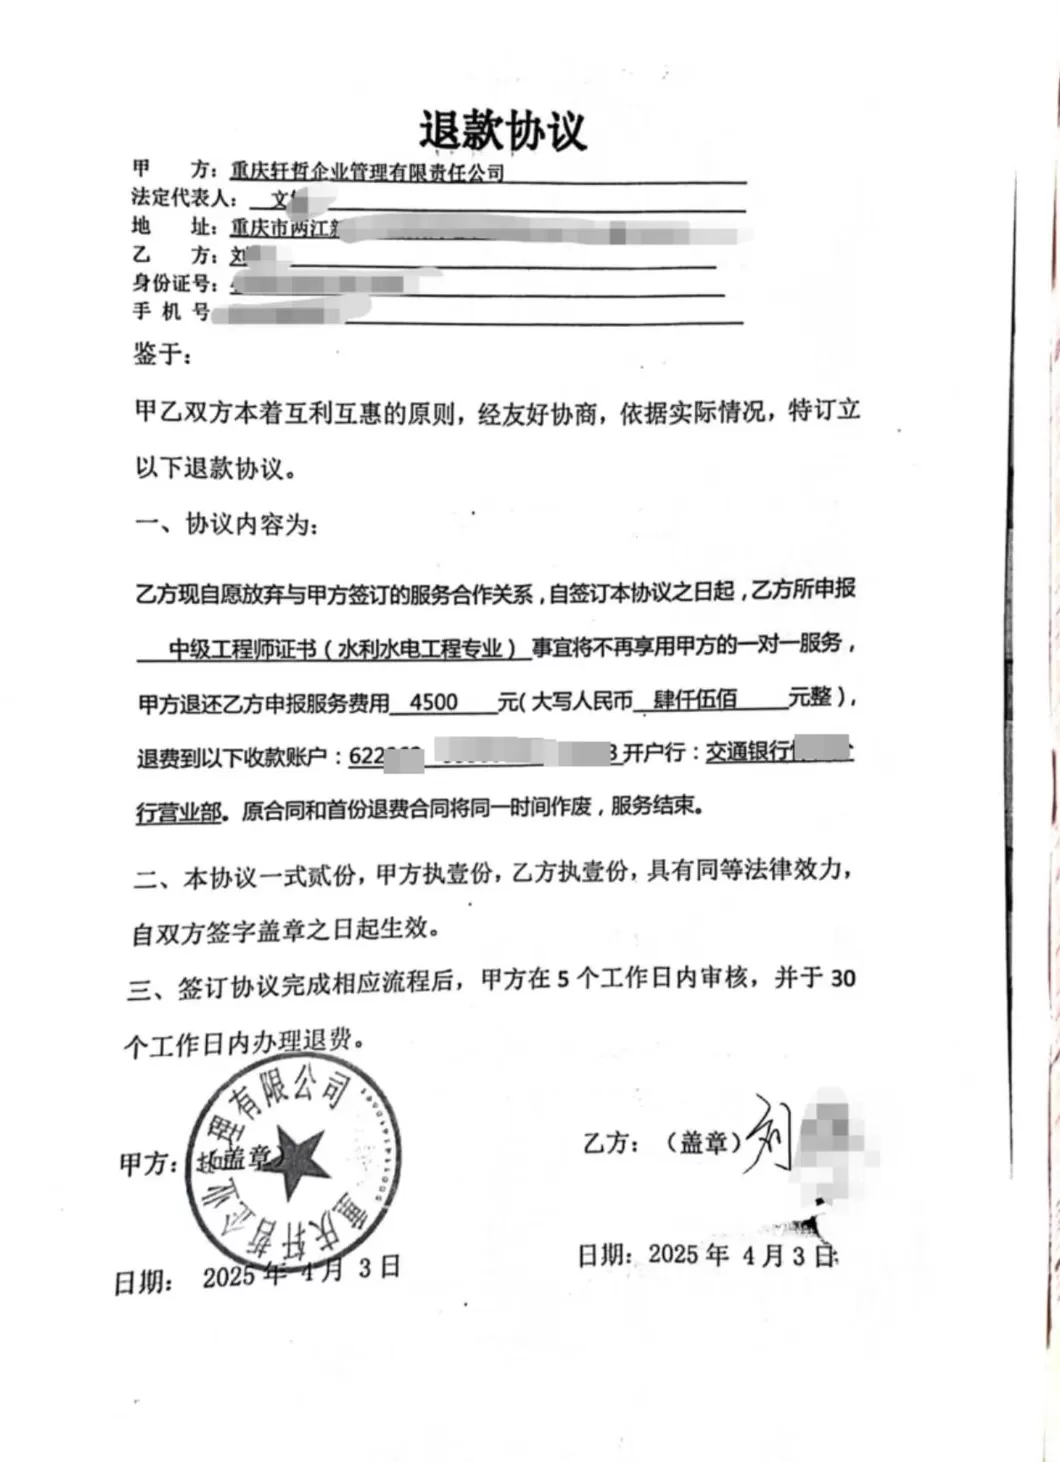 退款协议
甲 方：重庆轩哲企业管理有限责任公司
法定代表人： 文
地 址：重庆市两江新
乙 方：刘
身份证号：
手 机 号
鉴于：
甲乙双方本着互利互惠的原则，经友好协商，依据实际情况，特订立
以下退款协议。
一、协议内容为：
乙方现自愿放弃与甲方签订的服务合作关系，自签订本协议之日起，乙方所申报
中级工程师证书（水利水电工程专业）事宜将不再享用甲方的一对一服务，
甲方退还乙方申报服务费用 4500 元（大写人民币 肆仟伍佰 元整），
退费到以下收款账户：622 8开户行：交通银行
行营业部。原合同和首份退费合同将同一时间作废，服务结束。
二、本协议一式贰份，甲方执壹份，乙方执壹份，具有同等法律效力，
自双方签字盖章之日起生效。
三、签订协议完成相应流程后，甲方在 5 个工作日内审核，并于 30
个工作日内办理退费。
重庆轩哲企业管理有限公司
甲方：（盖章）
乙方：（盖章）刘
日期： 2025 年 4 月 3 日
日期：2025 年 4 月 3 日